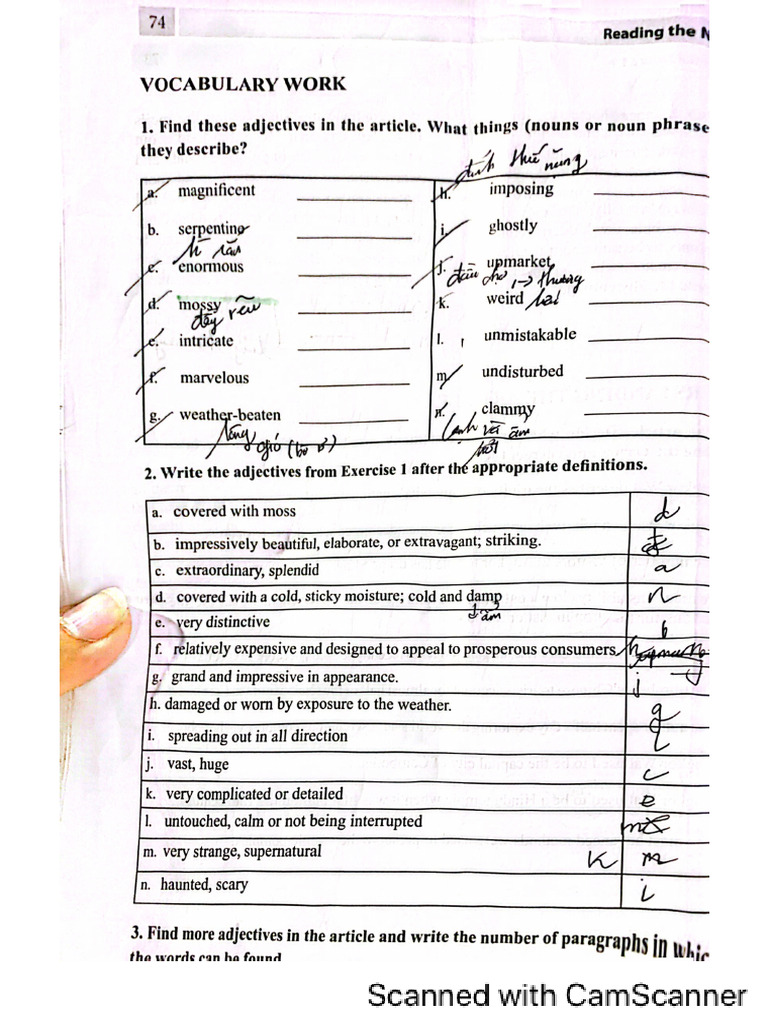 74
Reading the N
VOCABULARY WORK
1. Find these adjectives in the article. What things (nouns or noun phrase
they describe?
a. magnificent
b. serpentine
c. enormous
d. mossy
đầy rêu
e. intricate
f. marvelous
g. weather-beaten
gió
h. imposing
i. ghostly
j. upmarket
k. weird
l. unmistakable
m. undisturbed
n. clammy
2. Write the adjectives from Exercise 1 after the appropriate definitions.
a. covered with moss d
b. impressively beautiful, elaborate, or extravagant; striking.
c. extraordinary, splendid a
d. covered with a cold, sticky moisture; cold and damp n
ẩm
e. very distinctive b
f. relatively expensive and designed to appeal to prosperous consumers
g. grand and impressive in appearance. j
h. damaged or worn by exposure to the weather. g
i. spreading out in all direction
j. vast, huge c
k. very complicated or detailed e
l. untouched, calm or not being interrupted
m. very strange, supernatural K m
n. haunted, scary i
3. Find more adjectives in the article and write the number of paragraphs in whic
the words can be found
Scanned with CamScanner